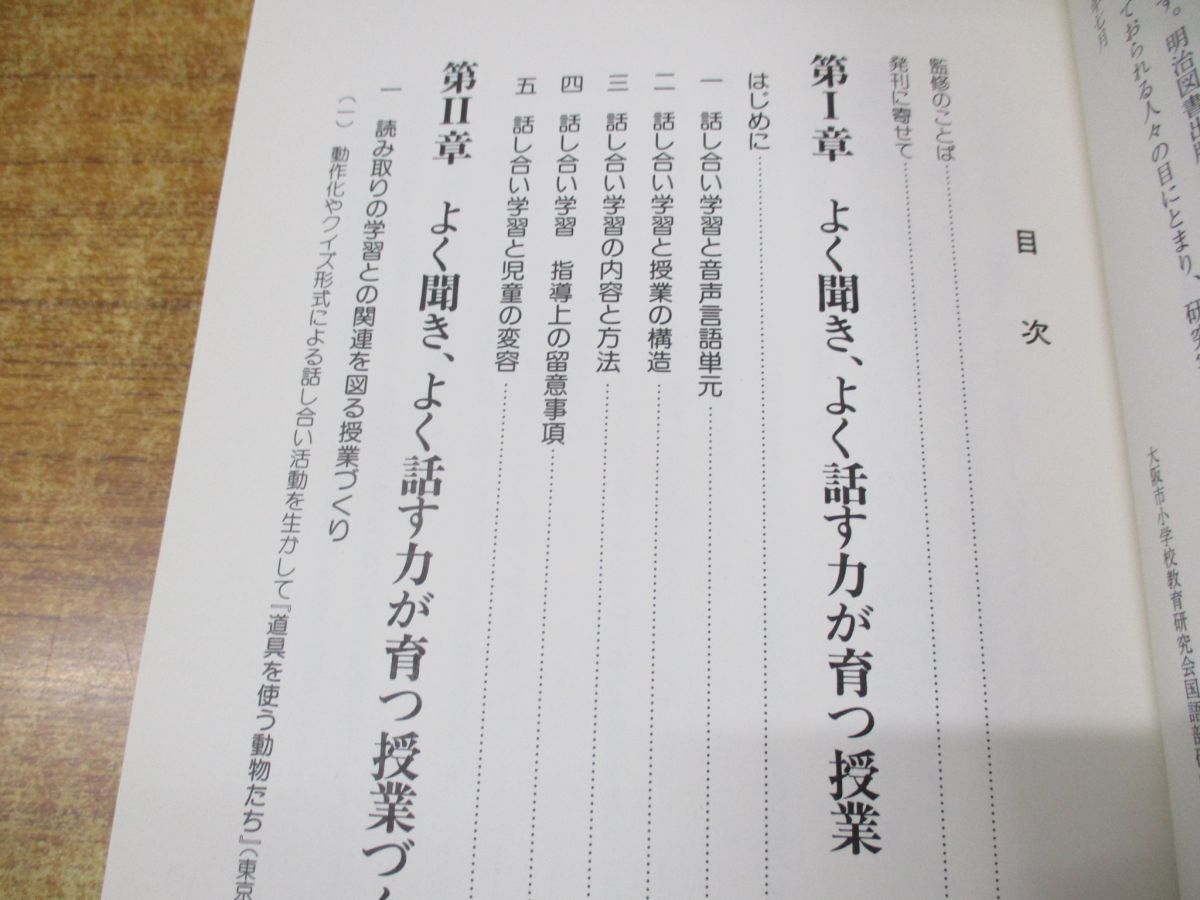 す。明治図書出版
ておられる人々の目にとまり、研究
七月
大阪市小学校教育研究会国語部
目次
監修のことば
発刊に寄せて
第Ⅰ章 よく聞き、よく話す力が育つ授業
はじめに
一 話し合い学習と音声言語単元
二 話し合い学習と授業の構造
三 話し合い学習の内容と方法
四 話し合い学習 指導上の留意事項
五 話し合い学習と児童の変容
第Ⅱ章 よく聞き、よく話す力が育つ授業づく
一 読み取りの学習との関連を図る授業づくり
(一) 動作化やクイズ形式による話し合い活動を生かして『道具を使う動物たち』(東京